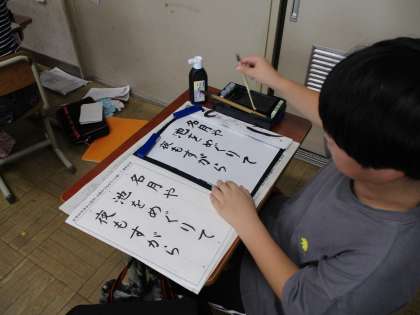 名月や
池をめぐりて
夜もすがら
名月や
池をめぐりて
夜もすがら